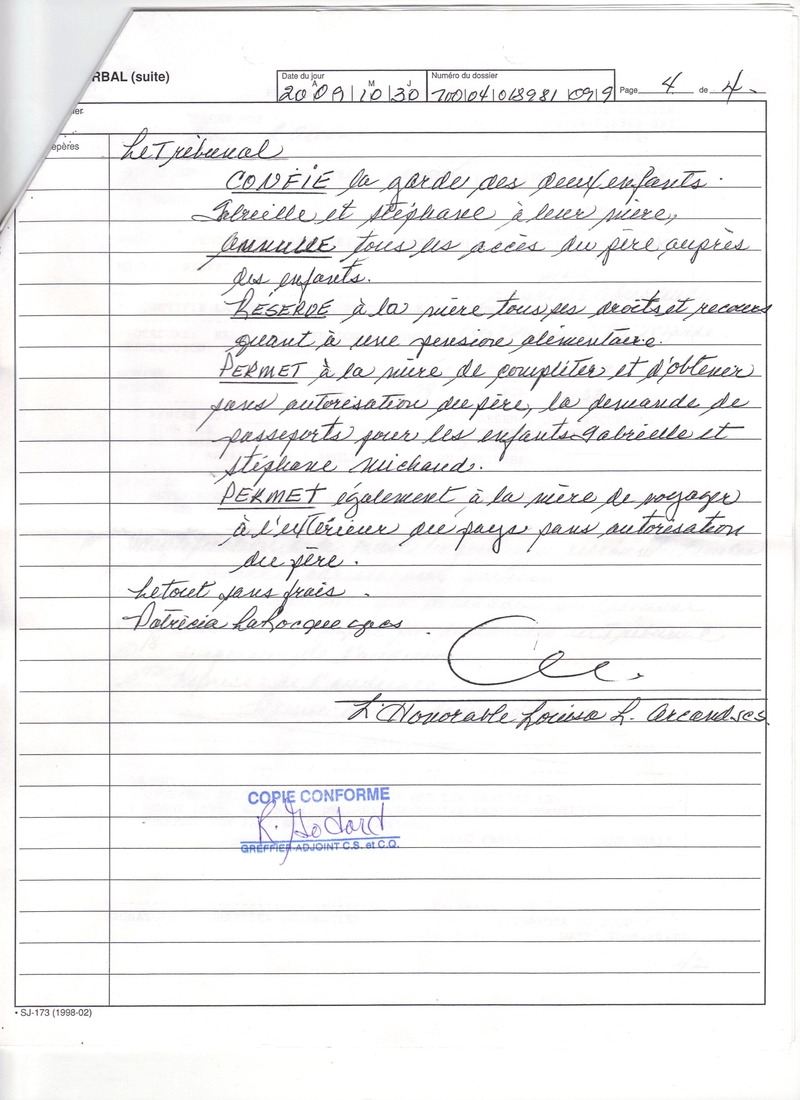 RBAL (suite)
Date du jour
Numéro du dossier
A M J
2009 | 10 | 30
700 | 04 | 018981 | 099
Page 4 de 4
epères
Le Tribunal
CONFIE la garde des deux enfants
Gabrielle et Stéphane à leur mère,
ANNULE tous les accès du père auprès
des enfants.
RÉSERVE à la mère tous ses droits et recours
quant à une pension alimentaire.
PERMET à la mère de compléter et d'obtenir
sans autorisation du père, la demande de
passeports pour les enfants Gabrielle et
Stéphane Michaud.
PERMET également à la mère de voyager
à l'extérieur du pays sans autorisation
du père.
Le tout sans frais.
Patricia LaRocque gacs
L'Honorable Louisa L. Arcand jcs.
COPIE CONFORME
R. Godard
GREFFIER-ADJOINT C.S. et C.Q.
• SJ-173 (1998-02)